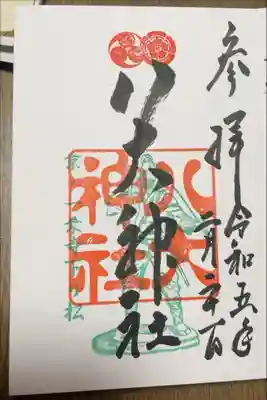 参拝
令和五年
二月二十一日
八大神社
八大
神社
京一乗寺下り松